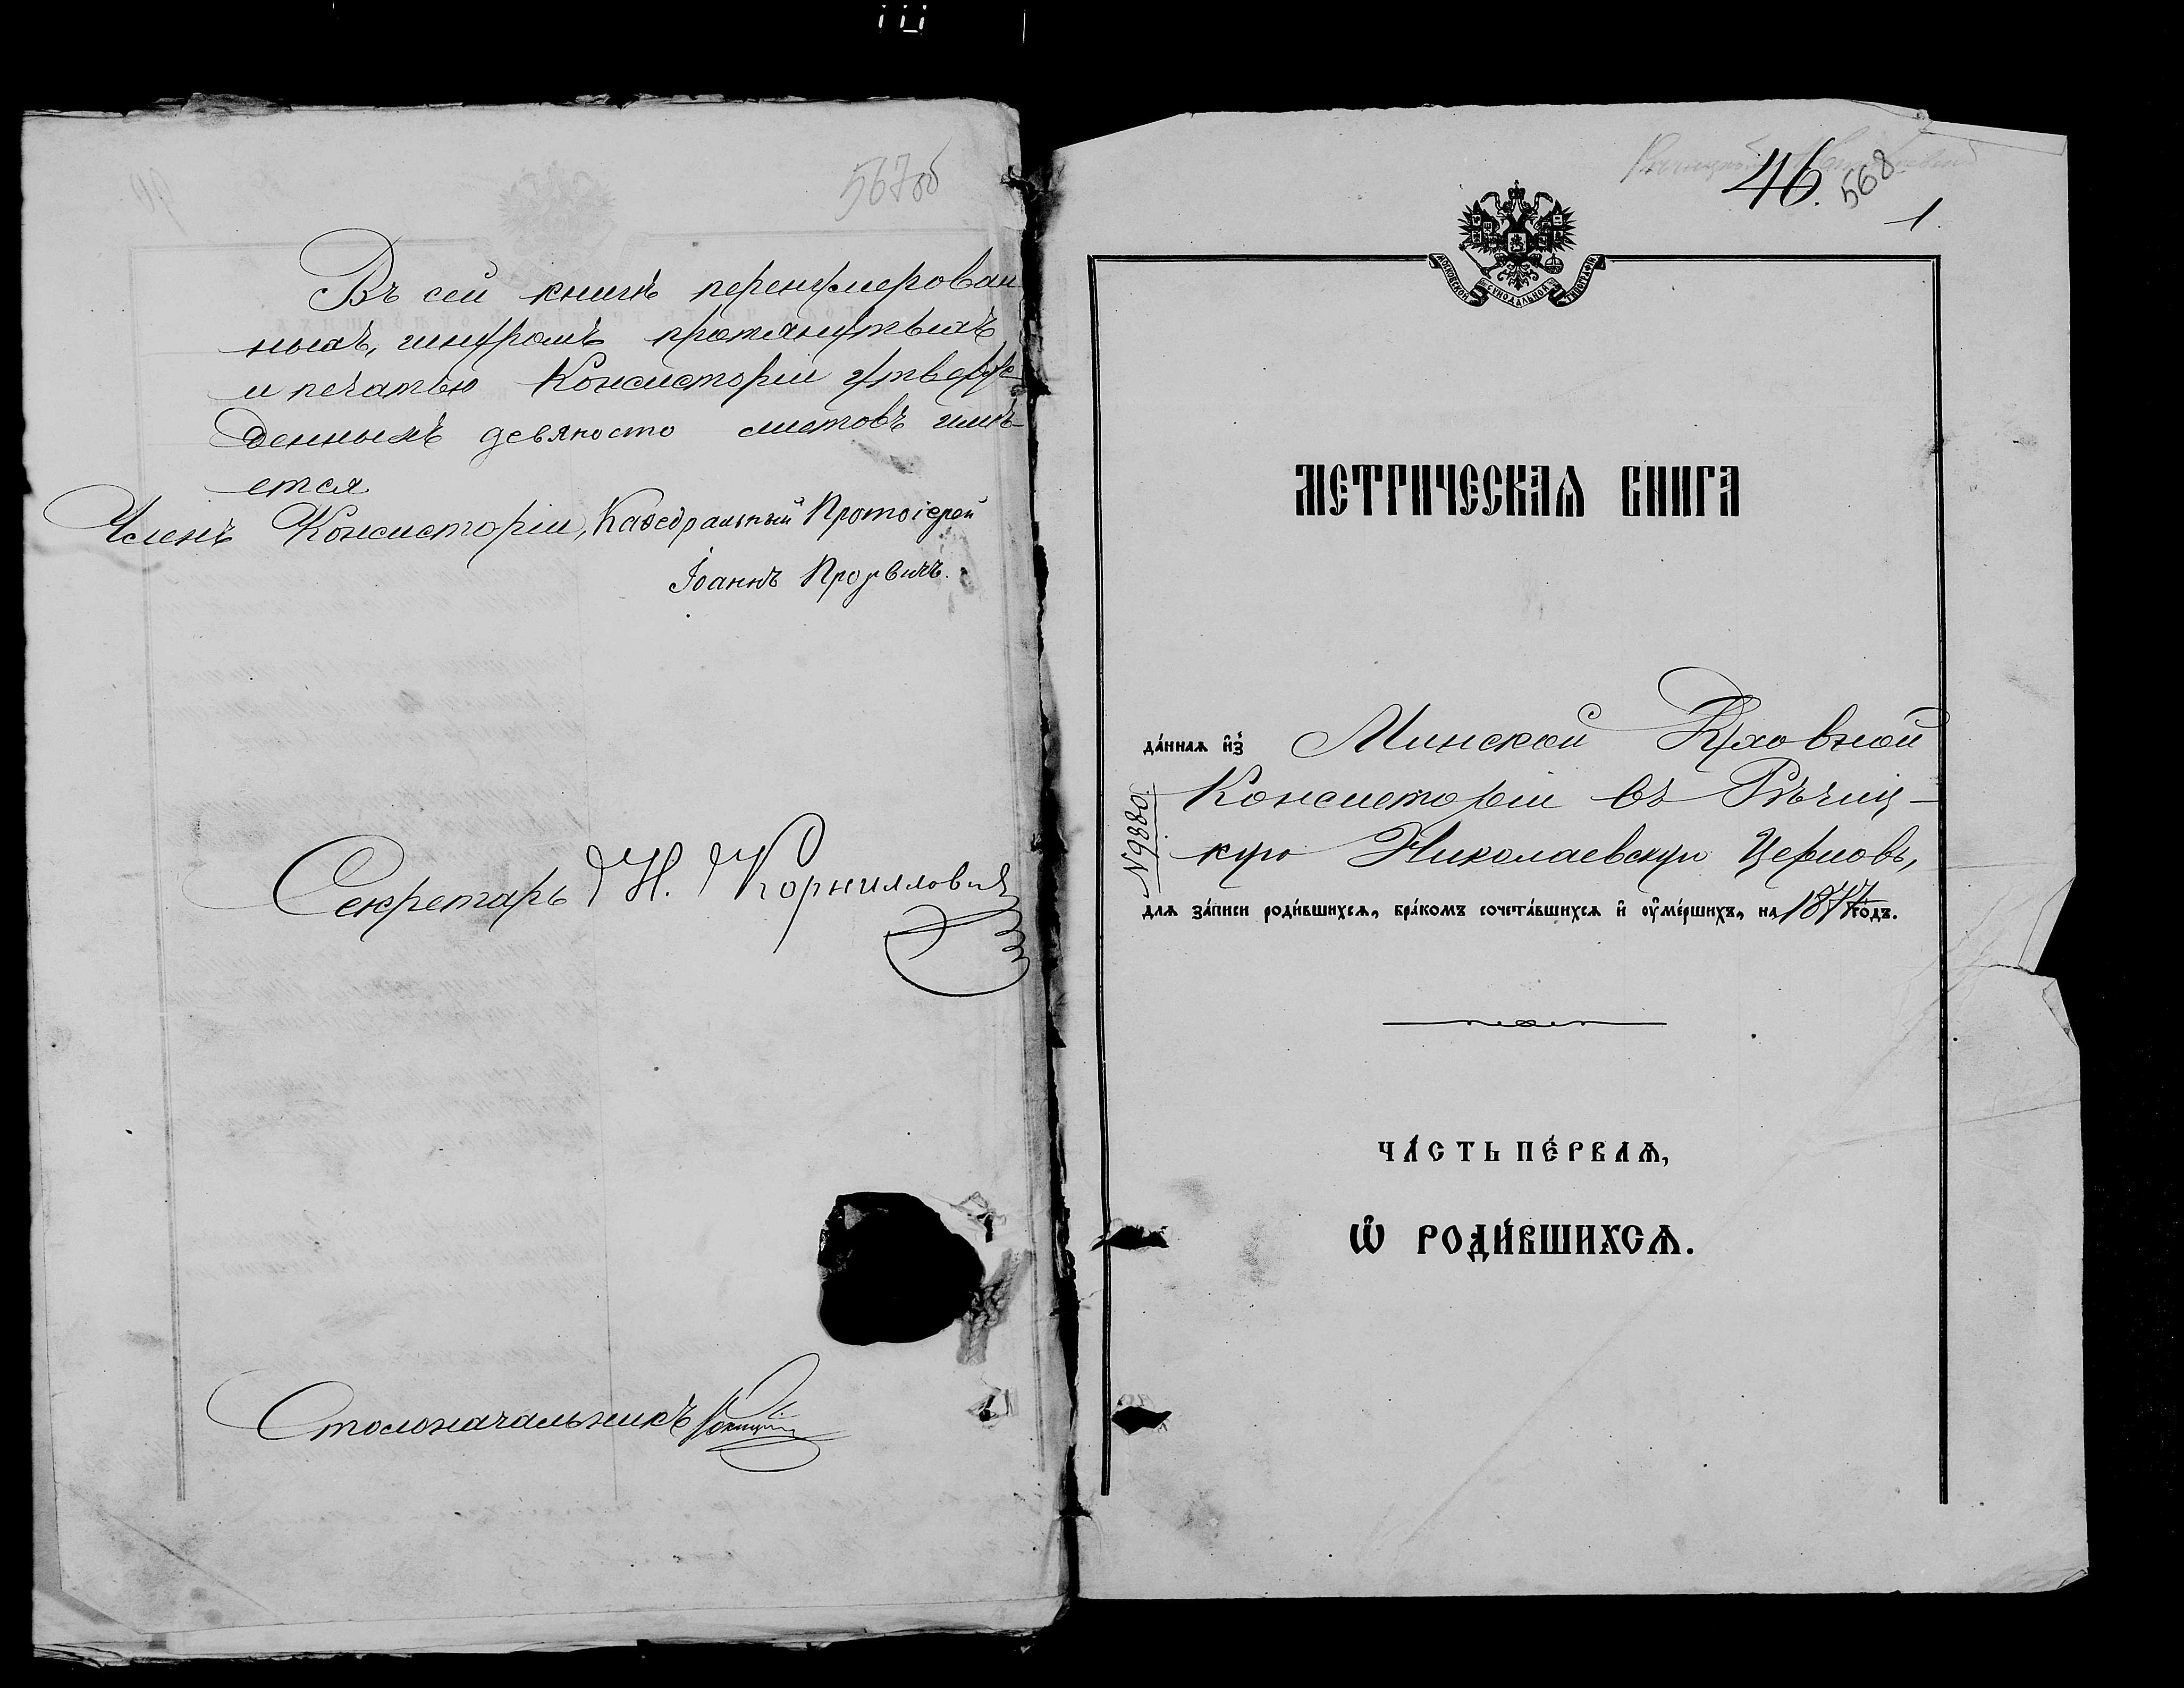 567об
Въ сей книгѣ перенумерован
ныхъ, шнуромъ протянутыхъ
и печатью Консисторіи утверж-
денныхъ девяносто листовъ имѣ-
ется
Членъ Консисторіи, Каѳедральный Протоіерей
Іоаннъ
Секретарь Н. Корниллович
Столоначальникъ
46. 568
1.
МОСКОВСКОЙ СѴНОДАЛЬНОЙ ТИПОГРАФІИ
МЕТРИЧЕСКАѦ КНИГА
да́ннаѧ и҆з̾ Минской Духовной
Консисторіи въ Рѣчиц-
кую Николаевскую Церковь,
№9880.
длѧ за́писи роди́вшихсѧ, бра́комъ сочета́вшихсѧ и҆ ѹ҆ме́ршихъ, на годъ.
ЧА́СТЬ ПЕ́РВАѦ,
Ѽ РОДИ́ВШИХСѦ.